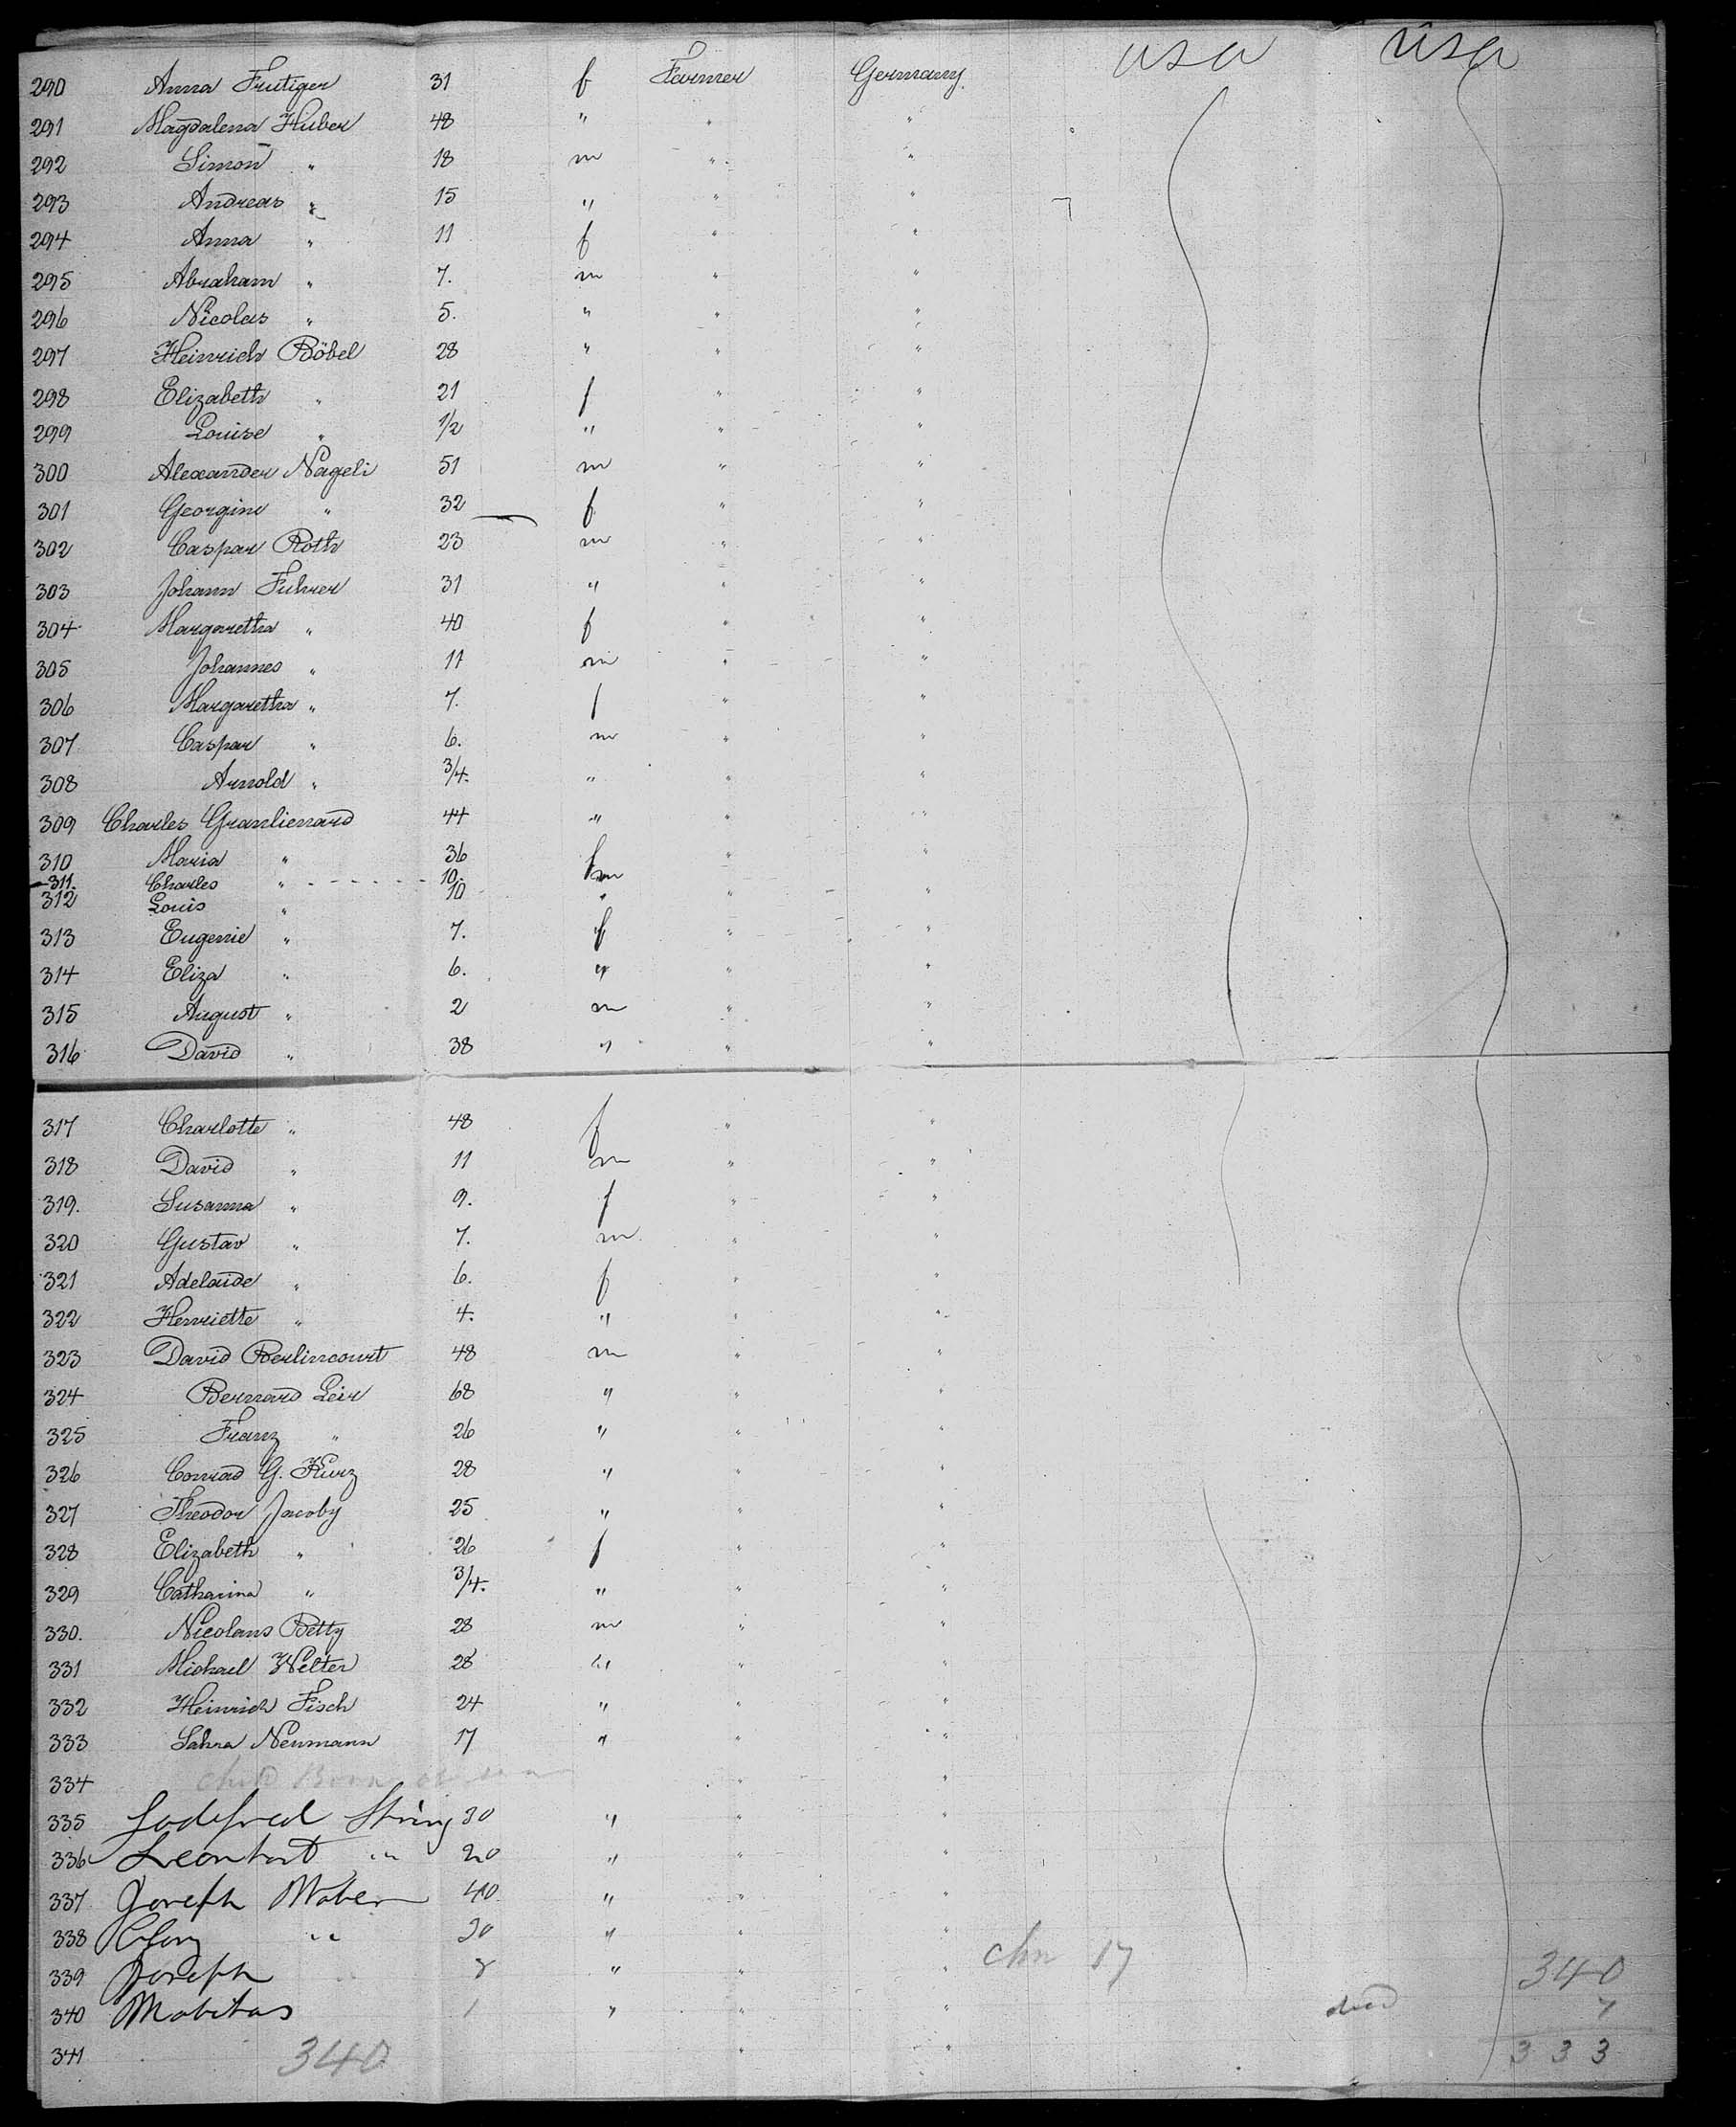 usa usa
290 Anna Frutiger 31 f Farmer Germany.
291 Magdalena Huber 48 " " "
292 Simon " 18 m " "
293 Andreas " 15 " " "
294 Anna " 11 f " "
295 Abraham " 7. m " "
296 Nicolas " 5. " " "
297 Heinrich Böbel 28 " " "
298 Elizabeth " 21 f " "
299 Louise " 1/2 " " "
300 Alexander Nageli 51 m " "
301 Georgine " 32 f " "
302 Caspar Roth 23 m " "
303 Johann Fuhrer 31 " " "
304 Margaretha " 40 f " "
305 Johannes " 11 m " "
306 Margaretha " 7. f " "
307 Caspar " 6. m " "
308 Arnold " 3/4. " " "
309 Charles Granlienard 44 " " "
310 Maria " 36 f " "
311. Charles " 10. m
312 Louis " 10 " " "
313 Eugenie " 7. f " "
314 Eliza " 6. " " "
315 August " 2 m " "
316 David " 38 " " "
317 Charlotte " 48 f " "
318 David " 11 m " "
319. Susanna " 9. f " "
320 Gustav " 7. m " "
321 Adelaide " 6. f " "
322 Henriette " 4. " " "
323 David Berlincourt 48 m " "
324 Bernard Leir 68 " " "
325 Franz " 26 " " "
326 Conrad G. Kurz 28 " " "
327 Theodor Jacoby 25 " " "
328 Elizabeth " 26 f " "
329 Catharina " 3/4. " " "
330. Nicolaus Betty 28 m " "
331 Michael Welter 28 " " "
332 Heinrich Fisch 24 " " "
333 Sahra Neumann 17 " " "
334 Child Born at sea " "
335 Godefred 30 " " "
336 Leonhart " 20 " " "
337 Joseph Maber 40 " " "
338 " 30 " " "
339 Joseph " 8 " " " chn 17 340
340 1 " " " died 7
341 340 " " 333